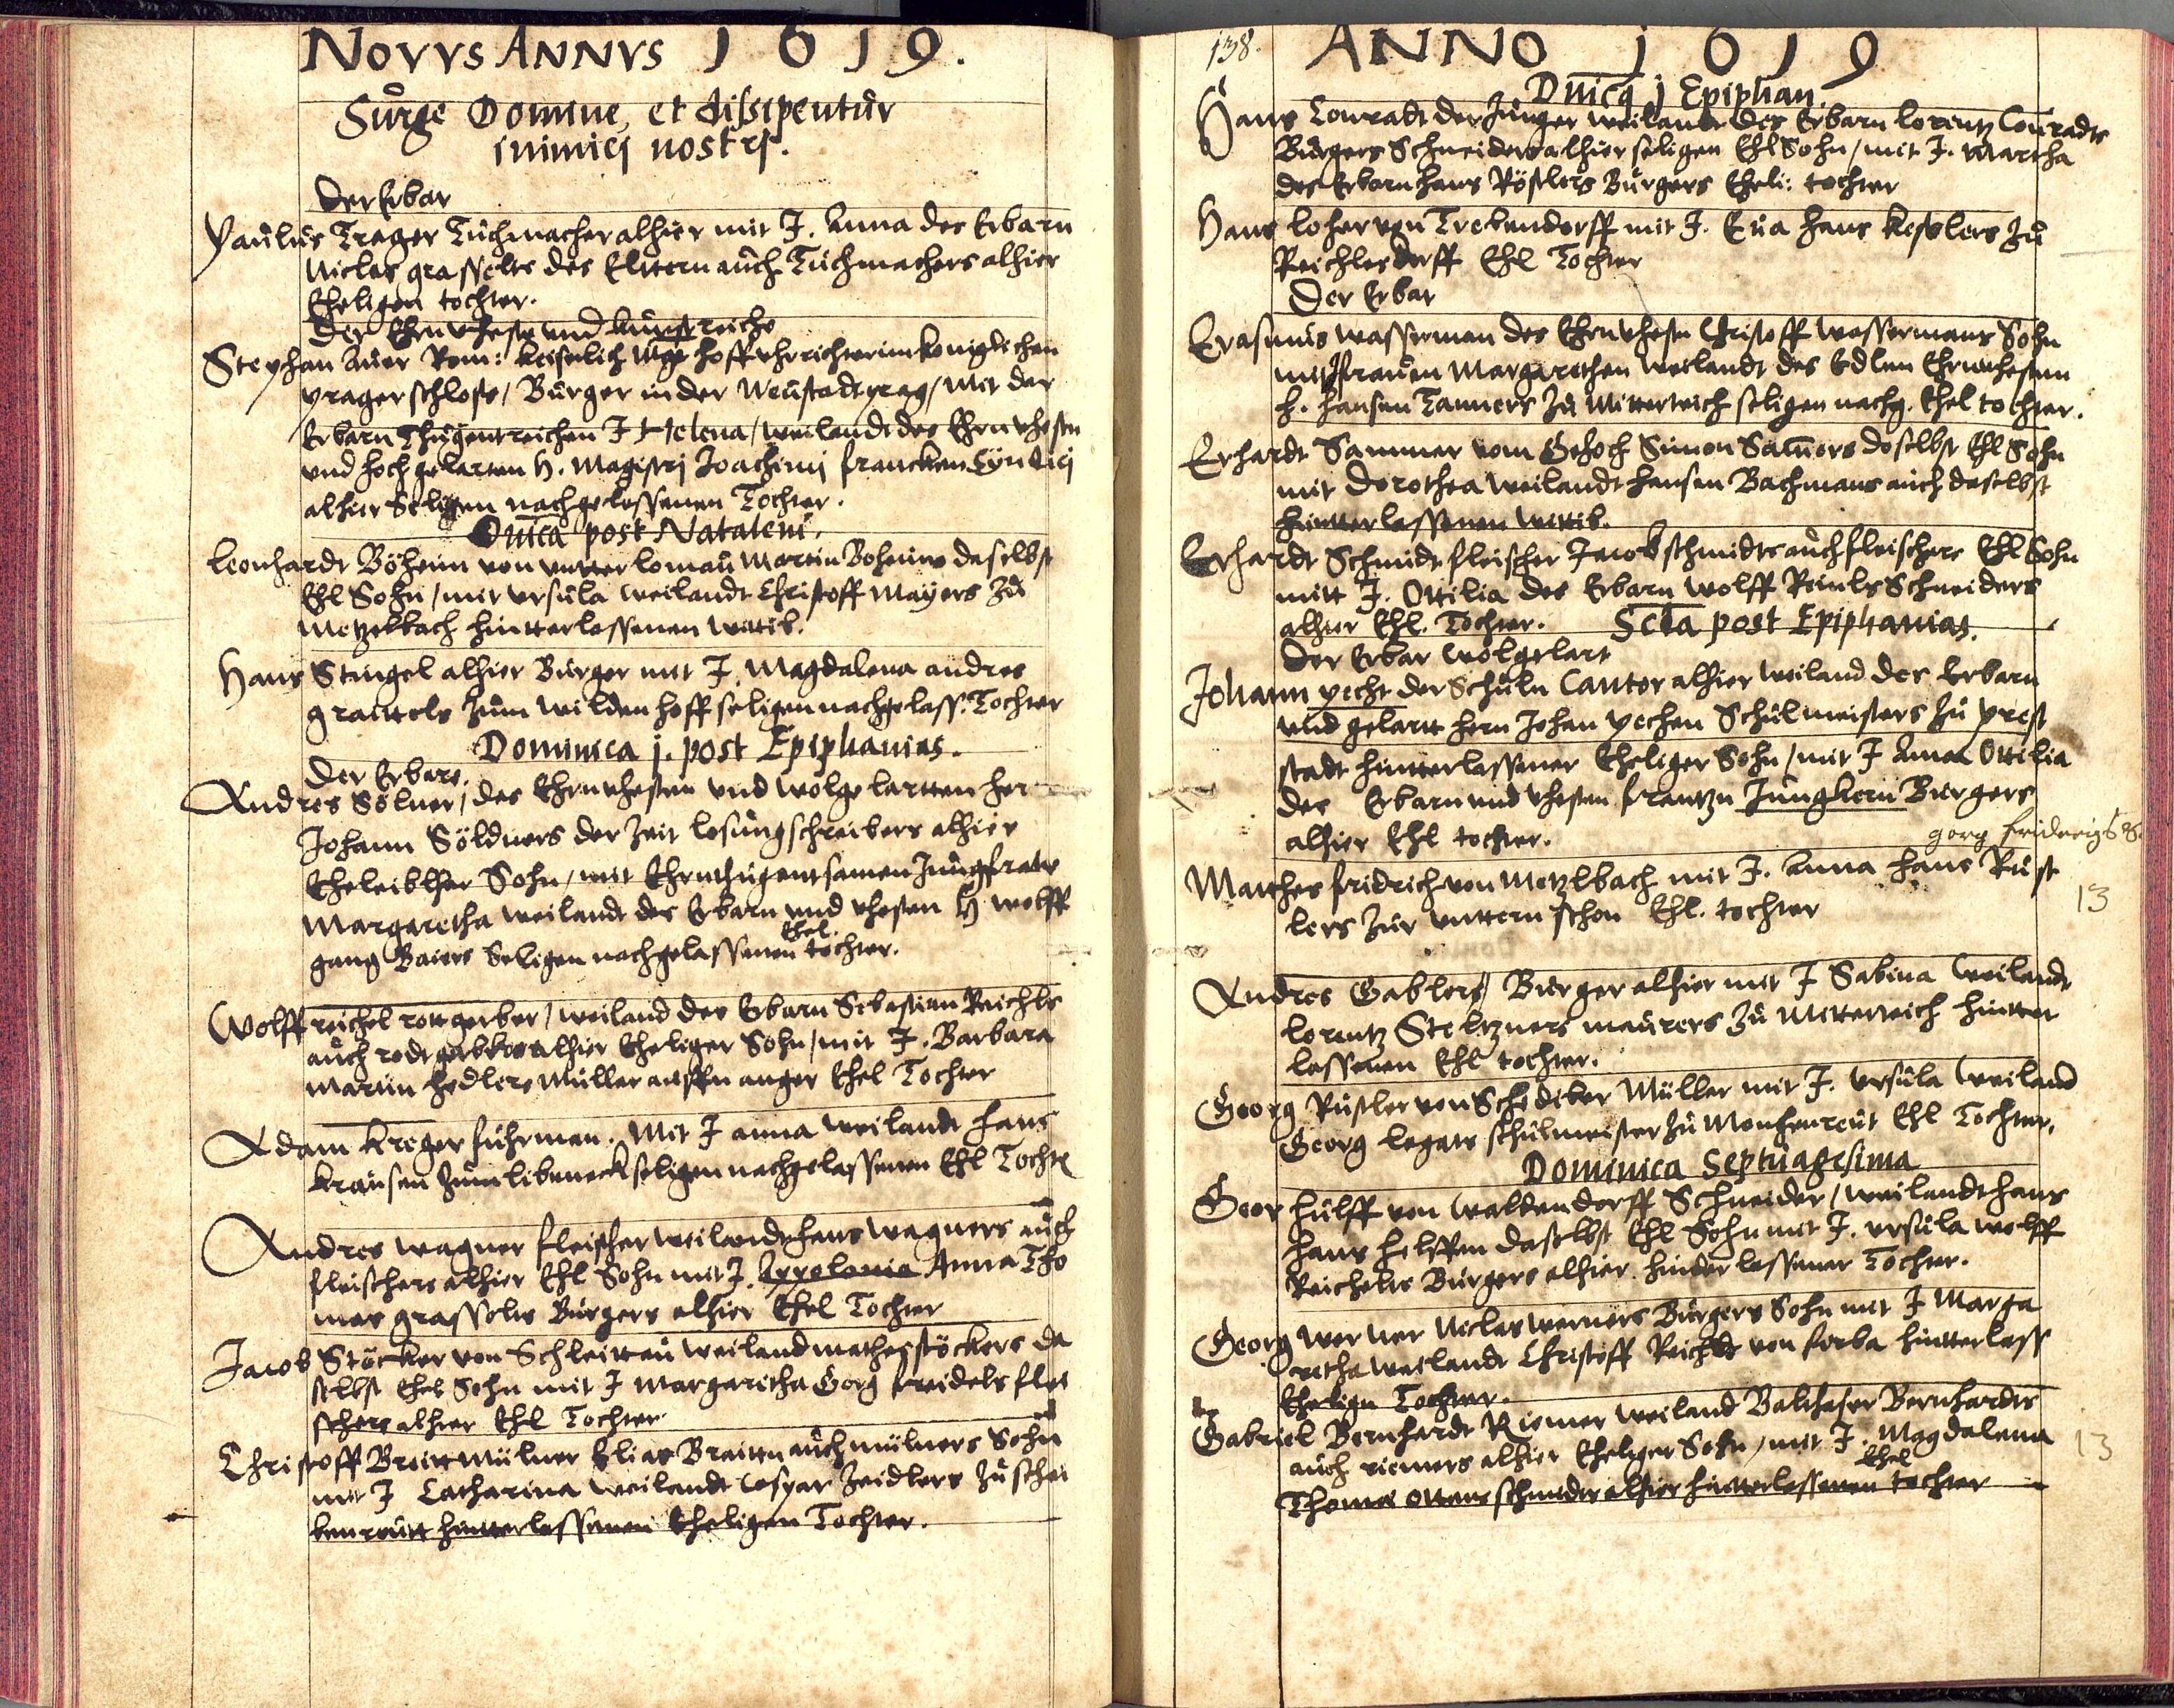 NOVVS ANNVS 1619.
Surge Domine, et dissipentur
inimici nostri.
Der Erbar
Paulus Trager Tuchmacher alhier mit J. Anna des Erbarn
Niclas grasselts des Eltern auch Tuchmachers alhier
Eheligen tochter.
Der Ehrnvheste und kunstreiche
Stephan Auer Rom: keiserlich Mgt hoff vhrrichter im königlichen
prager schloss / Burger in der Neustadt prag / Mit der
Erbarn Thugentreichen J Helena / weilandt des Ehrnvhesten
und hoch gelarten H. Magistri Joachimi francken Syndici
alhier Seligen nachgelassenen Tochter.
Dnica post Natalem.
Leonhardt Böheim von unter lomau Martin Boheims daselbst
Ehl Sohn / mit ursula weilandt Christoff Mayers zu
Metzelbach hintterlassenen wittib.
Hans Stingel alhier Burger mit J. Magdalena andres
graittels zum wilden hoff seligen nachgelass. Tochter
Dominica j. post Epiphanias.
Der Erbare
Andres Sölner / des Ehrnvhesten und wolgelartten her
Johann Söldners der Zeit losungschreibers alhier
Eheleiblher Sohn / mit Ehrnthugentsamen Jungfraw
Margaretha weilandt des Erbarn und vhesten H wolff
gang Baiers Seligen nachgelassenen Ehel. tochter.
Wolff reichel rottgerber / weiland des Erbarn Sebastian Reichls
auch rodtgerbers alhier Eheliger Sohn / mit J. Barbara
Martin hedlers Müller aussn anger Ehel Tochter
Adam Kreger fuhrman. Mit J anna weilandt hans
krausen zum libeneck seligen nachgelassenen Ehl Tochter
Andres wagner fleischer weilandt hans wagners auch
fleischers alhier Ehl Sohn mit J. Appolonia Anna Tho
mas grassolts Burgers alhier Ehel Tochter
Jacob Stöcker von Schleittau weiland mathes stöckers da
selbst Ehel Sohn mit J Margaretha Görg kreidels flei
schers alhier Ehl Tochter
Christoff Breitt Mülner Elias Braittn auch mülners Sohn
mit J Catharina weilandt Caspar Zeidlers zu schei
benreutt hintterlassenen Eheligen Tochter.
138. ANNO 1619
Dnica j Epiphan.
Hans Conradt der Junger weilandt des Erbarn lorentz Conradts
Burgers Schneiders alhier seligen Ehl Sohn / mit J. Martha
des Erbarn hans Röslers Burgers Eheli: tochter
Hans loher von Trebendorff mit J. Eua hans kesslers zu
Reichlesdorff Ehl Tochter
Der Erbar
Erasmus wasserman des Ehrnvhestn Christoff wassermans Sohn
mit frauen Margarethen weilandt des Edlen Ehrnvhesten
h. hansen Tanners zu Mitterteich seligen nachg. Ehel tochter.
Erhardt Sammer vom Gehoch Simon Sammers doselbst Ehl Sohn
mit Dorothea weilandt hansen Bachmans auch daselbst
hintterlassenen wittib.
Erhardt Schmidt fleischer Jacob schmidts auch fleischers Ehl Sohn
mitt J. Ottilia des Erbarn wolff Reinls Schneiders
alhier Ehl. Tochter. Scda post Epiphanias.
Der Erbar wolgelart
Johann pecht der Schuln Cantor alhier weiland des Erbarn
und gelartt hern Johan pechen Schulmeisters zu prest
stadt hintterlassener Eheliger Sohn / mit J Anna Ottilia
des Erbarn und vhesten frantzn Jungkern Burgers
alhier Ehl tochter.
gorg fridrigs S.
Matthes fridrich von Metzlbach mit J. Anna hans Rüst
lers zur unttern schon Ehl. tochter
13
Andres Gablers Burger alhier mit J Sabina weilandt
lorentz Steltzners maurers zu Mitterteich hintter
lassenen Ehl tochter.
Georg Rustler von Schediber Müller mit J. Ursula weiland
Georg legats schulmeister zu Monhenreut Ehl Tochter.
Dominica Septuagesima
Geor hülff von waldendorff Schneider / weilandt hans
hans helffen daselbst Ehl Sohn mit J. ursula wolff
Reichelts Burgers alhier hinderlassener Tochter.
Georg werner Niclas werners Burgers Sohn mit J Marga
retha weilandt Christoff Reichls von forba hintterlass
Eheligen Tochter.
Gabriel Bernhardt Riemer weiland Balthasar Bernhardts
auch riemers alhier Eheliger Sohn / mit J. Magdalena
Thoma Ottens schmidts alhier hintterlassenen Ehel tochter
13